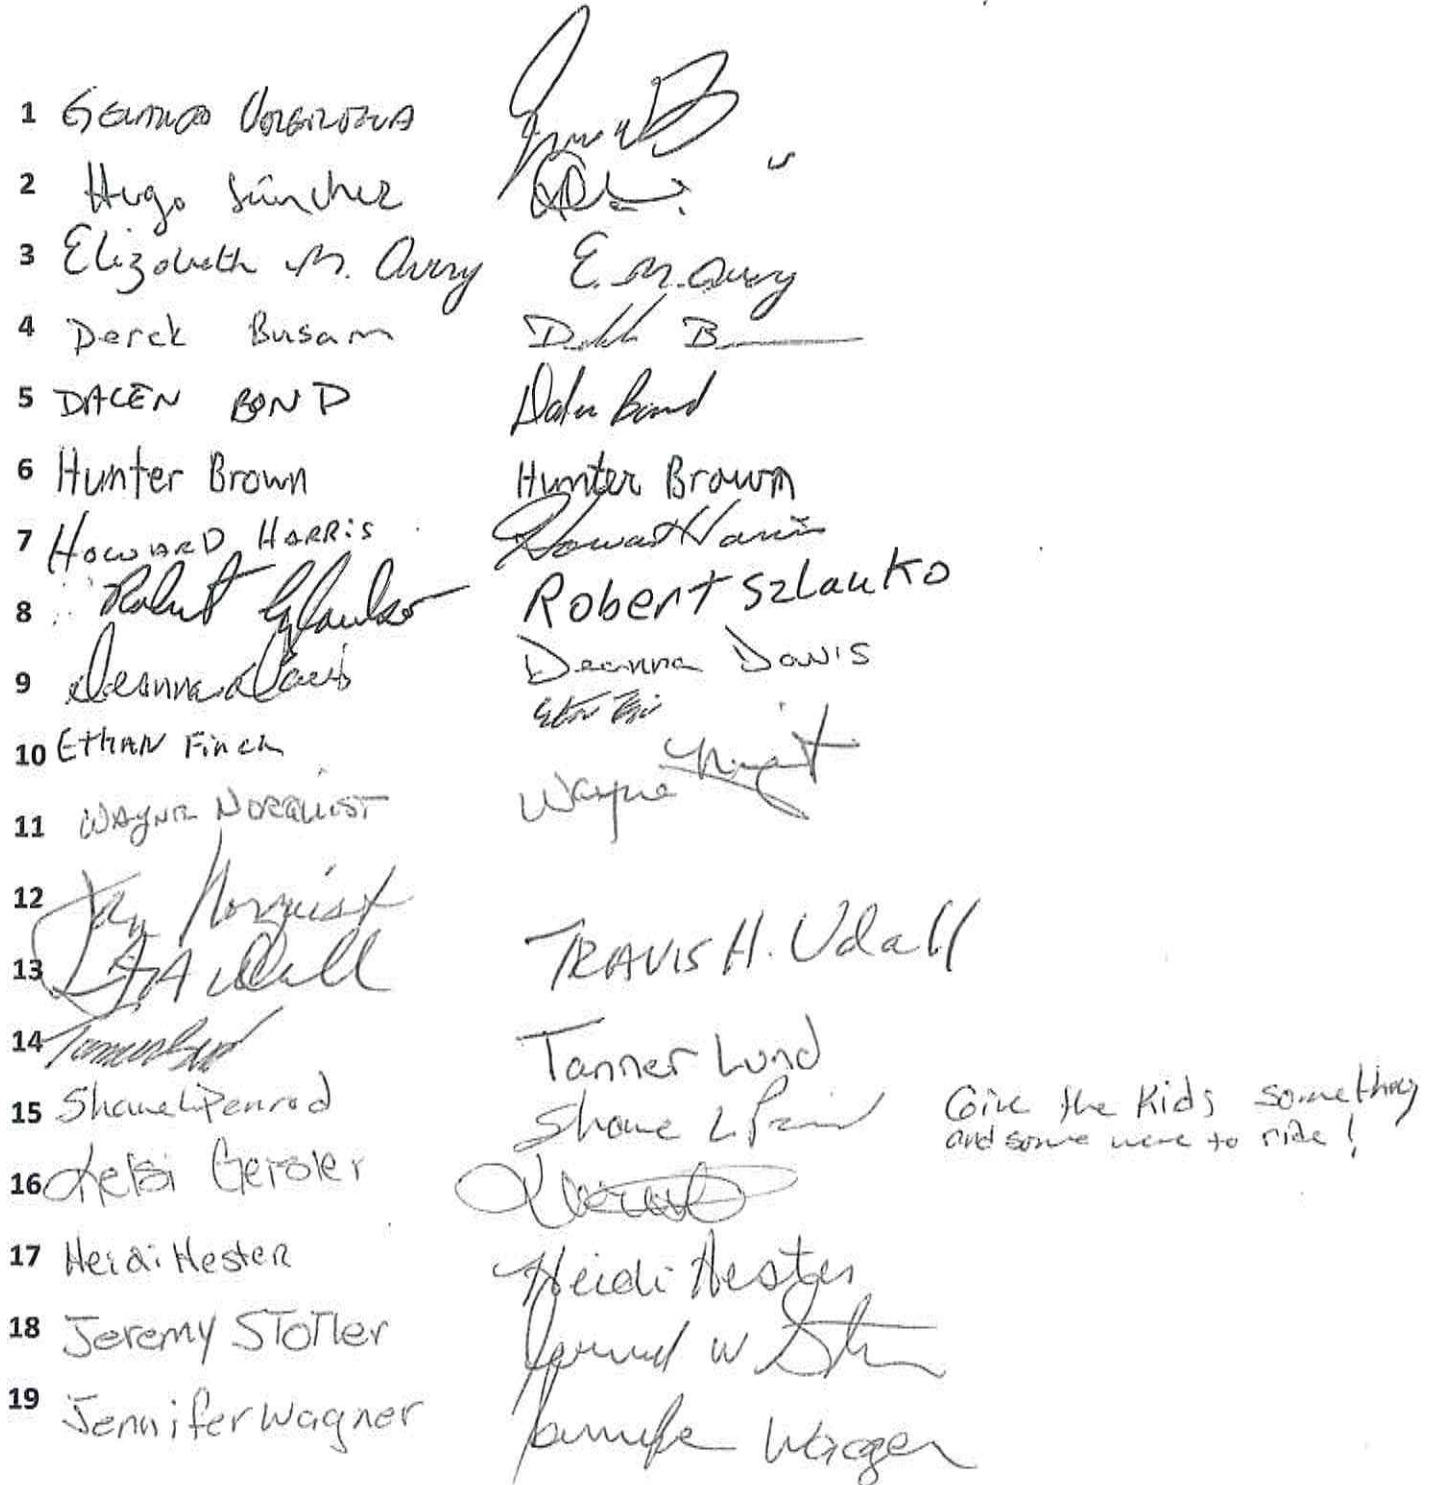 1
2 Hugo Sánchez
3 Elizabeth M. Avery E. M. Avery
4 Derek Busam
5 DALEN BOND Dalen Bond
6 Hunter Brown Hunter Brown
7 HOWARD HARRiS Howard Harris
8 Robert Szlauko Robert Szlauko
9 Deanna Davis Deanna Davis
10 ETHAN Finch
11 WAYNE NORQUIST Wayne
12 Norquist
13 Udall TRAVIS H. Udall
14 Tanner Lund
15 Shane L Penrod Shane L
Give the Kids something
and some were to ride!
16 Kelsi
17 Heidi Hester Heidi Hester
18 Jeremy STOTLER W
19 Jennifer Wagner Jennifer Wagner